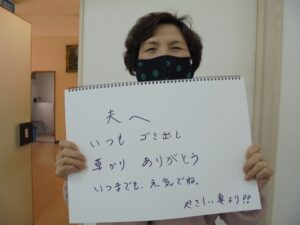 夫へ
いつも ゴミ出し
草かり ありがとう
いつまでも、元気でね。
やさしい妻より!!